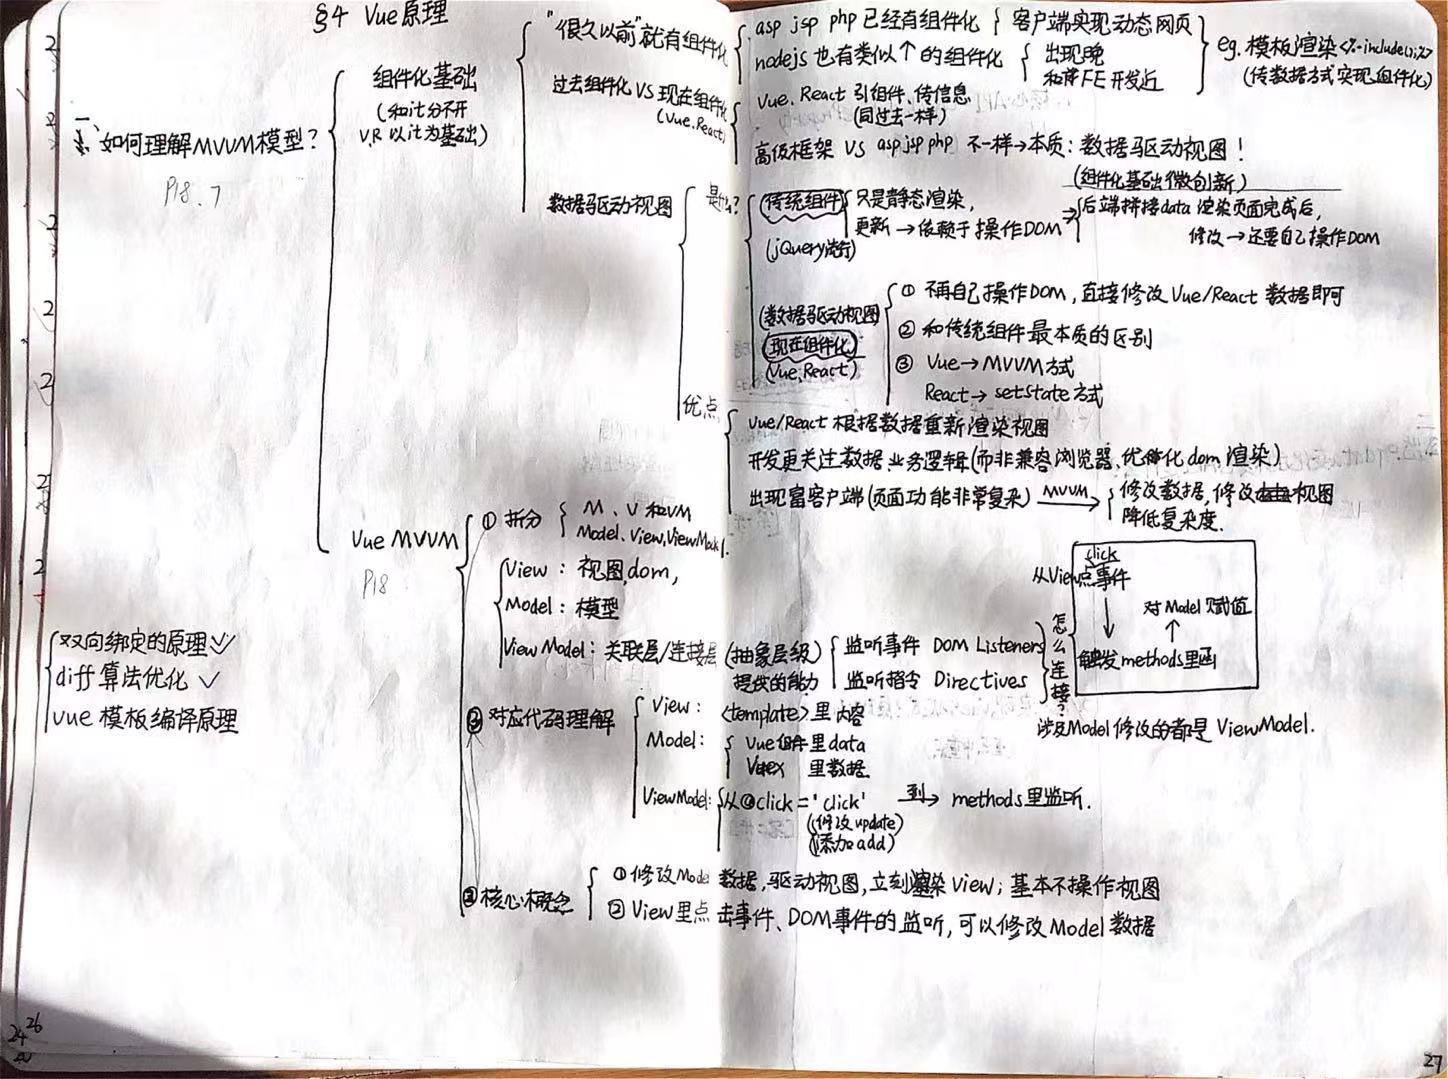 §4 Vue原理
一、如何理解MVVM模型?
P18.7
组件化基础
(和it分不开
V,R以it为基础)
"很久以前"就有组件化
asp jsp php 已经有组件化
客户端实现动态网页
nodejs也有类似↑的组件化
出现晚
和前FE开发近
eg.模板渲染<%-include();%>
(传数据方式实现组件化)
过去组件化 VS 现在组件化
(Vue、React)
Vue、React 引组件、传信息
(同过去一样)
高级框架 VS asp jsp php 不一样→本质:数据驱动视图!
(组件化基础微创新)
数据驱动视图
是什么?
传统组件
(jQuery流行)
只是静态渲染,
更新→依赖于操作DOM→
后端拼接data渲染页面完成后,
修改→还要自己操作DOM
(数据驱动视图
现在组件化
(Vue,React)
① 不再自己操作DOM,直接修改Vue/React数据即可
② 和传统组件最本质的区别
③ Vue→MVVM方式
React→setState方式
优点
Vue/React 根据数据重新渲染视图
开发更关注数据业务逻辑(而非兼容浏览器、优化dom渲染)
出现富客户端(页面功能非常复杂) MVVM→
修改数据,修改视图
降低复杂度.
Vue MVVM
P18
① 拆分
M、V和VM
Model、View,ViewModel.
View:视图,dom,
Model:模型
ViewModel:关联层/连接层
(抽象层级)
提供的能力
监听事件 DOM Listeners
监听指令 Directives
怎么连接?
click
从View点事件
↓
触发methods里函
↑
对Model赋值
涉及Model修改的都是ViewModel.
对应代码理解
View: <template>里内容
Model:
Vue组件里data
Vuex 里数据
ViewModel: 从@click='click' 到→ methods里监听.
(修改update)
(添加add)
核心概念
① 修改Model数据,驱动视图,立刻渲染View;基本不操作视图
② View里点击事件、DOM事件的监听,可以修改Model数据
双向绑定的原理✓
diff算法优化✓
vue模板编译原理
26
24
27